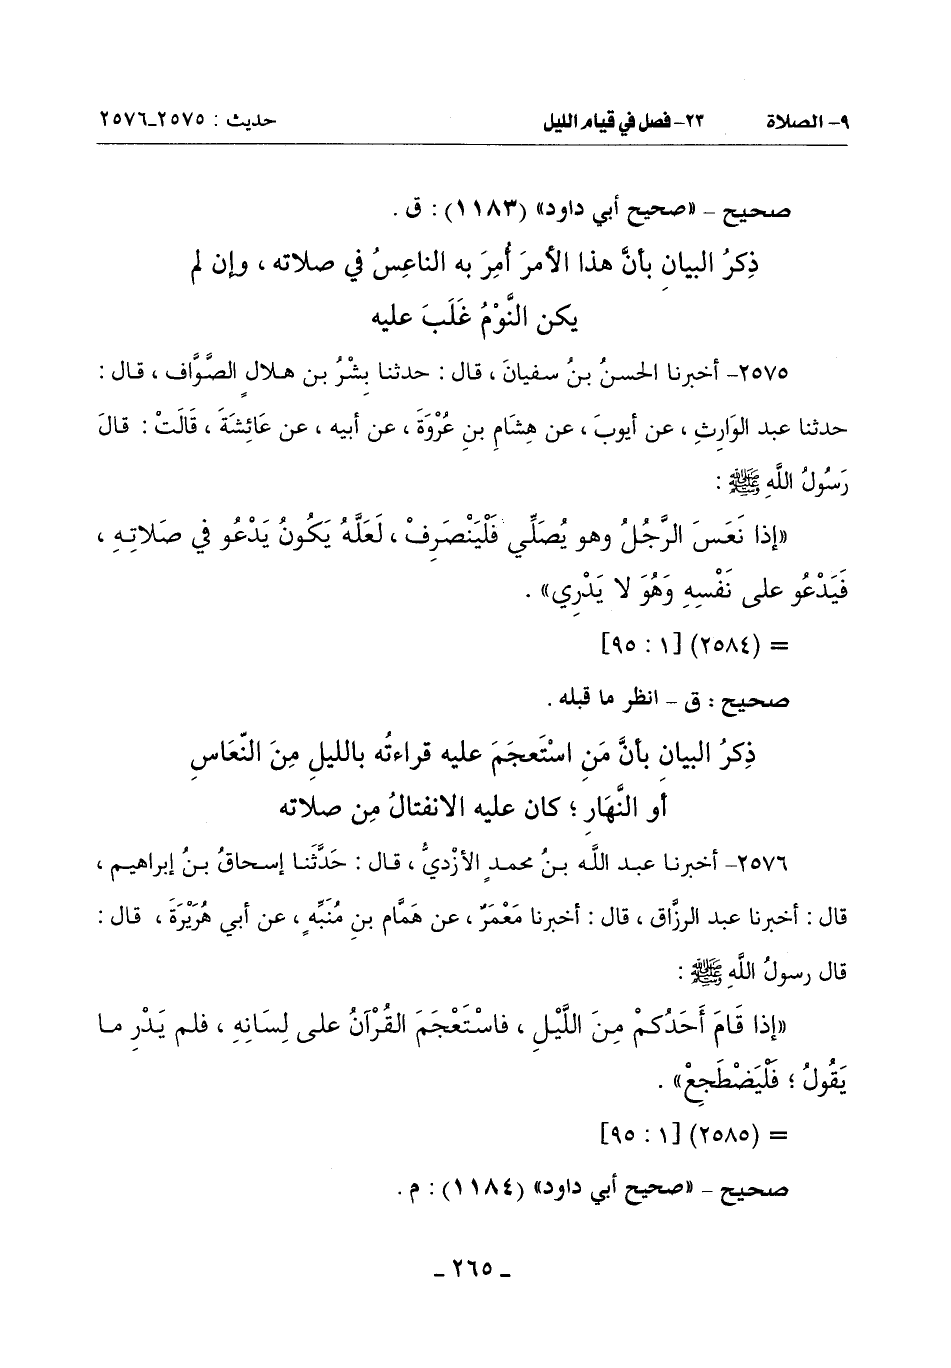 ٩- الصلاة ٢٣- فصل في قيام الليل حديث : ٢٥٧٥-٢٥٧٦
صحيح - «صحيح أبي داود» (١١٨٣) : ق .
ذِكرُ البيانِ بأنَّ هذا الأمرَ أُمِرَ به الناعِسُ في صلاته ، وإن لم
يكن النَّوْمُ غَلَبَ عليه
٢٥٧٥- أخبرنا الحسنُ بنُ سفيانَ ، قال : حدثنا بِشْرُ بن هلالٍ الصَّوَّاف ، قال :
حدثنا عبد الوَارِثِ ، عن أيوبَ ، عن هِشَامِ بنِ عُرْوَةَ ، عن أبيه ، عن عَائِشَةَ ، قَالَتْ : قالَ
رَسُولُ اللَّهِ ﷺ :
«إذا نَعَسَ الرَّجُلُ وهو يُصَلِّي فَلْيَنْصَرِفْ ، لَعَلَّهُ يَكُونُ يَدْعُو في صَلاتِهِ ،
فَيَدْعُو على نَفْسِهِ وَهُوَ لا يَدْرِي» .
= (٢٥٨٤) [١ : ٩٥]
صحيح : ق - انظر ما قبله .
ذِكرُ البيانِ بأنَّ مَنِ اسْتَعجَمَ عليه قراءتُه بالليلِ مِنَ النّعَاسِ
أو النَّهَارِ ؛ كان عليه الانفتالُ مِن صلاته
٢٥٧٦- أخبرنا عبد اللَّه بنُ محمدٍ الأزْديُّ ، قال : حَدَّثَنا إسحاقُ بنُ إبراهيم ،
قال : أخبرنا عبد الرزَّاق ، قال : أخبرنا مَعْمَرٌ ، عن هَمَّام بنِ مُنَبِّهٍ ، عن أبي هُرَيْرَةَ ، قال :
قال رسولُ اللَّهِ ﷺ :
«إذا قَامَ أَحَدُكمْ مِنَ اللَّيْلِ ، فاسْتَعْجَمَ القُرْآنُ على لِسَانِهِ ، فلم يَدْرِ ما
يَقُولُ ؛ فَلْيَضْطَجِعْ» .
= (٢٥٨٥) [١ : ٩٥]
صحيح - «صحيح أبي داود» (١١٨٤) : م .
- ٢٦٥ -